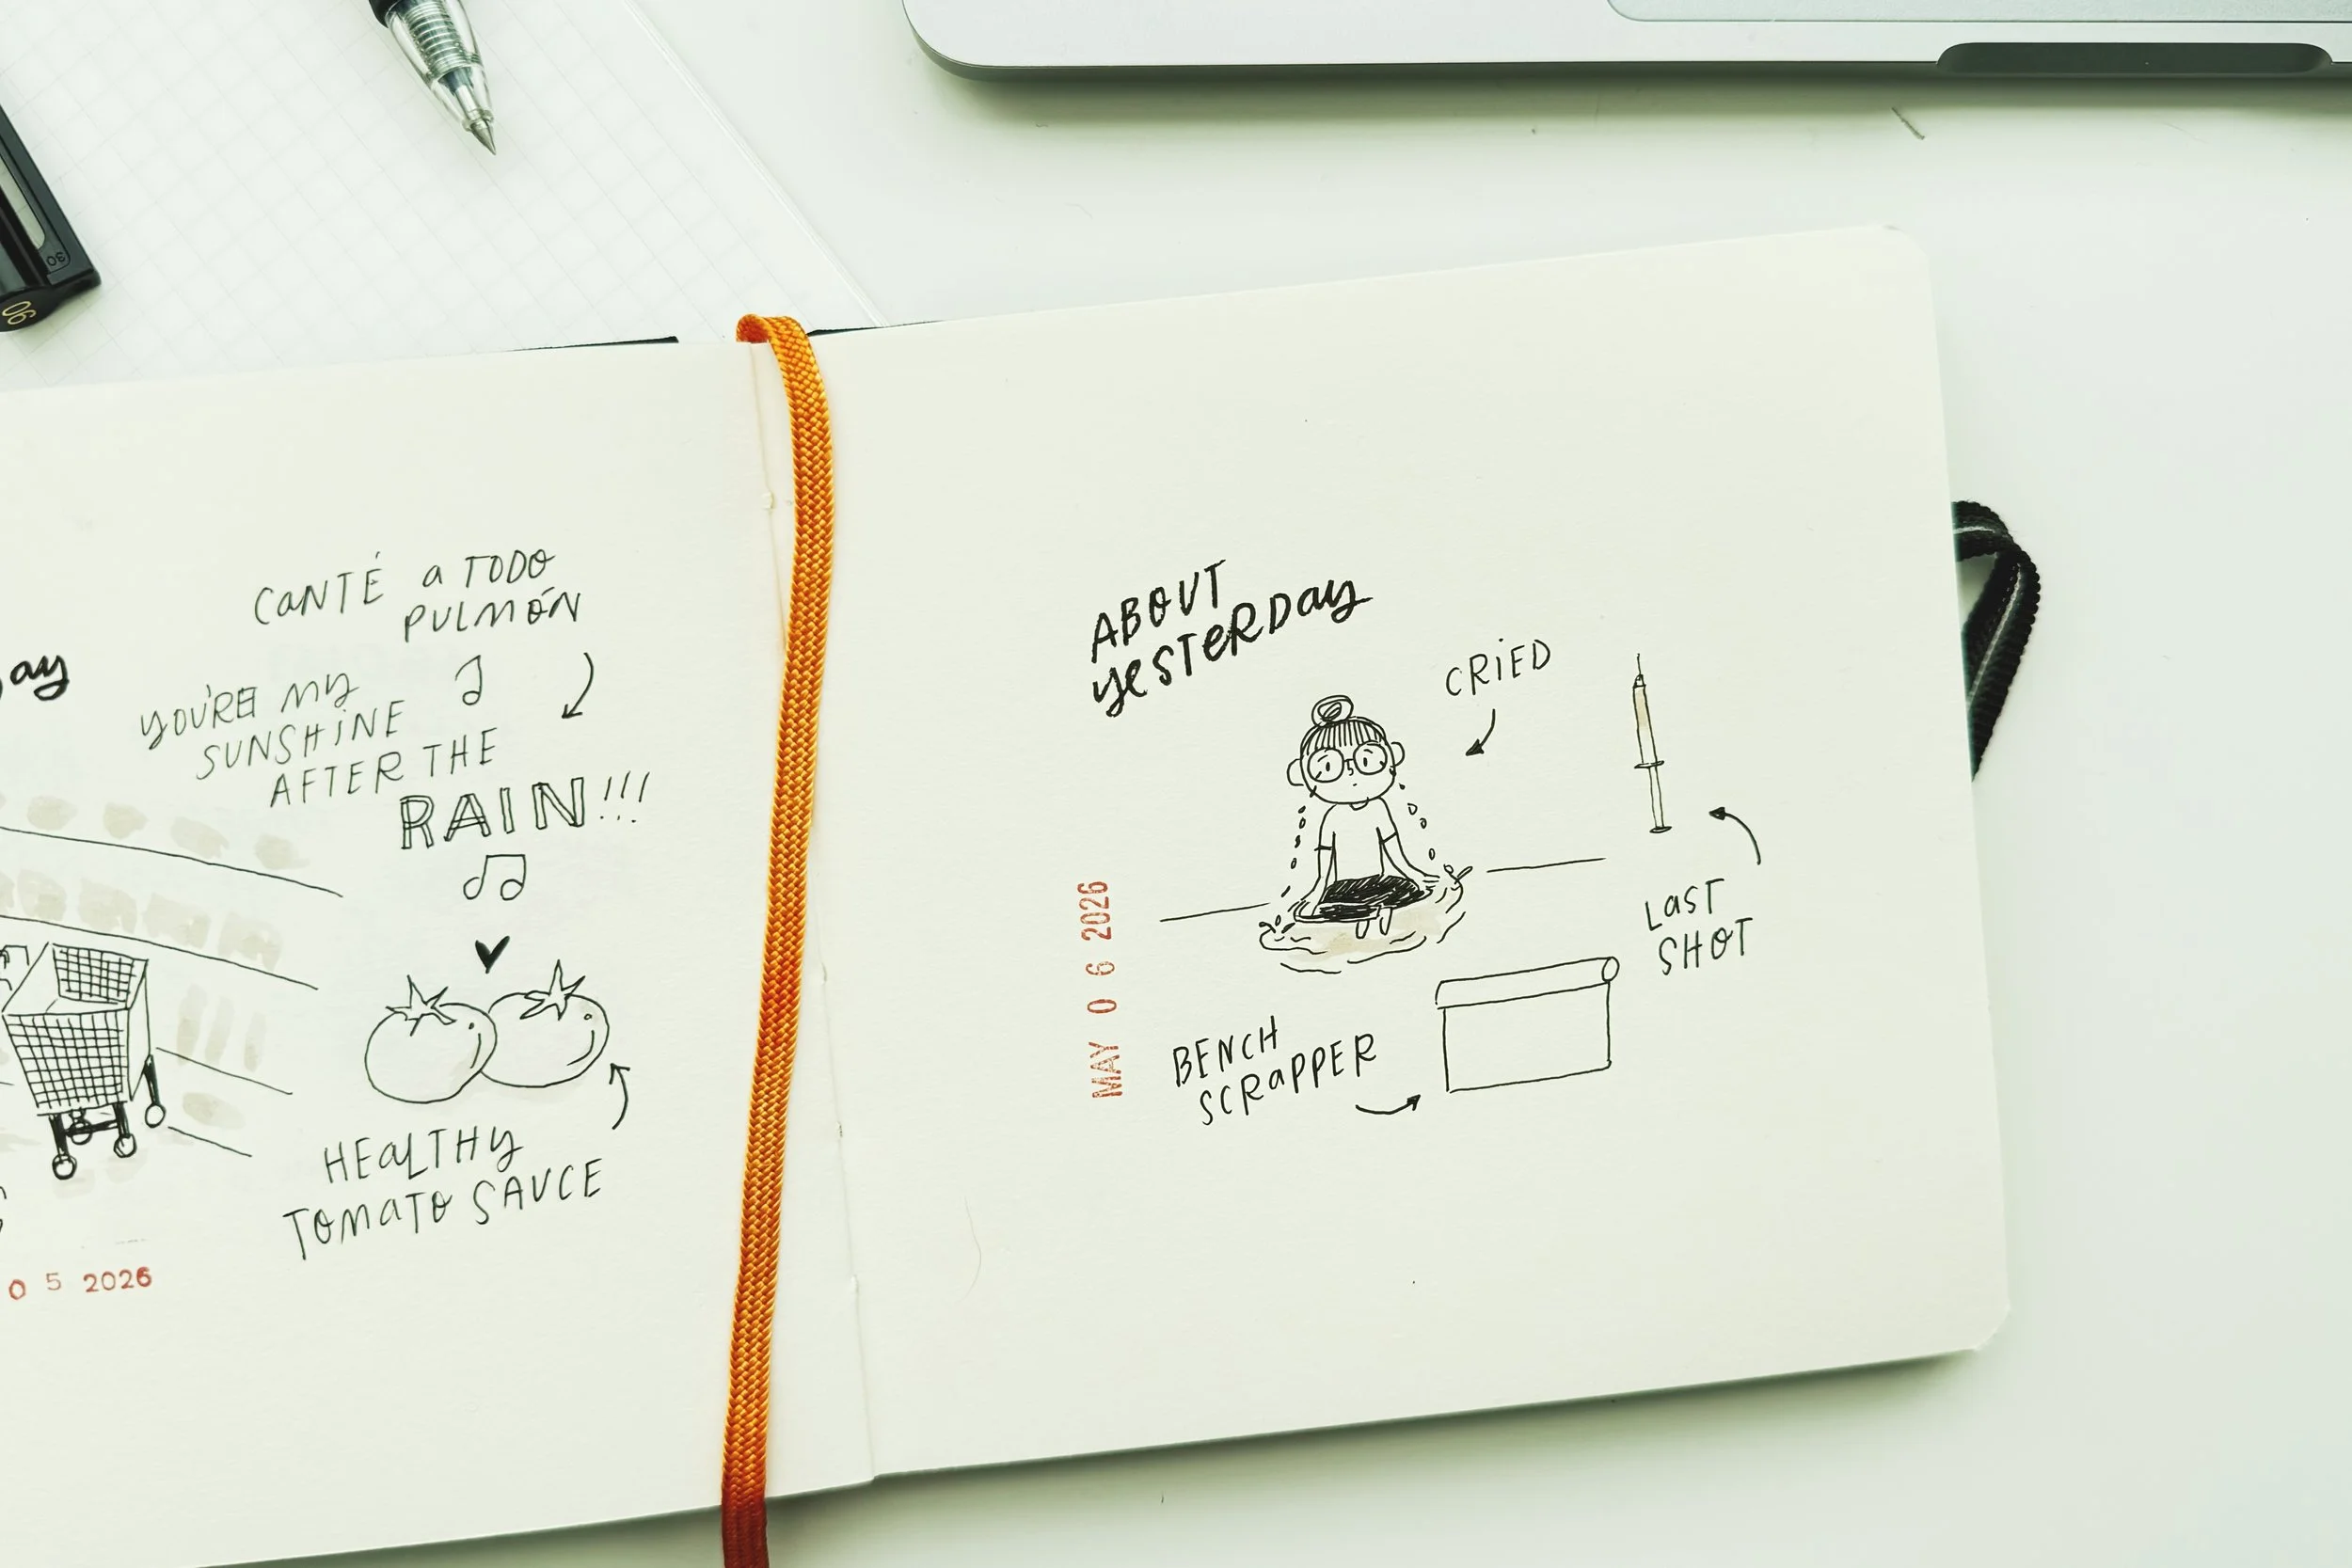 ay
CANTÉ a TODO
PULMÓN
YOU'RE MY
SUNSHINE
AFTER THE
RAIN!!!
HEALTHY
TOMATO SAUCE
0 5 2026
ABOUT
YESTERDAY
CRIED
LAST
SHOT
BENCH
SCRAPPER
MAY 0 6 2026